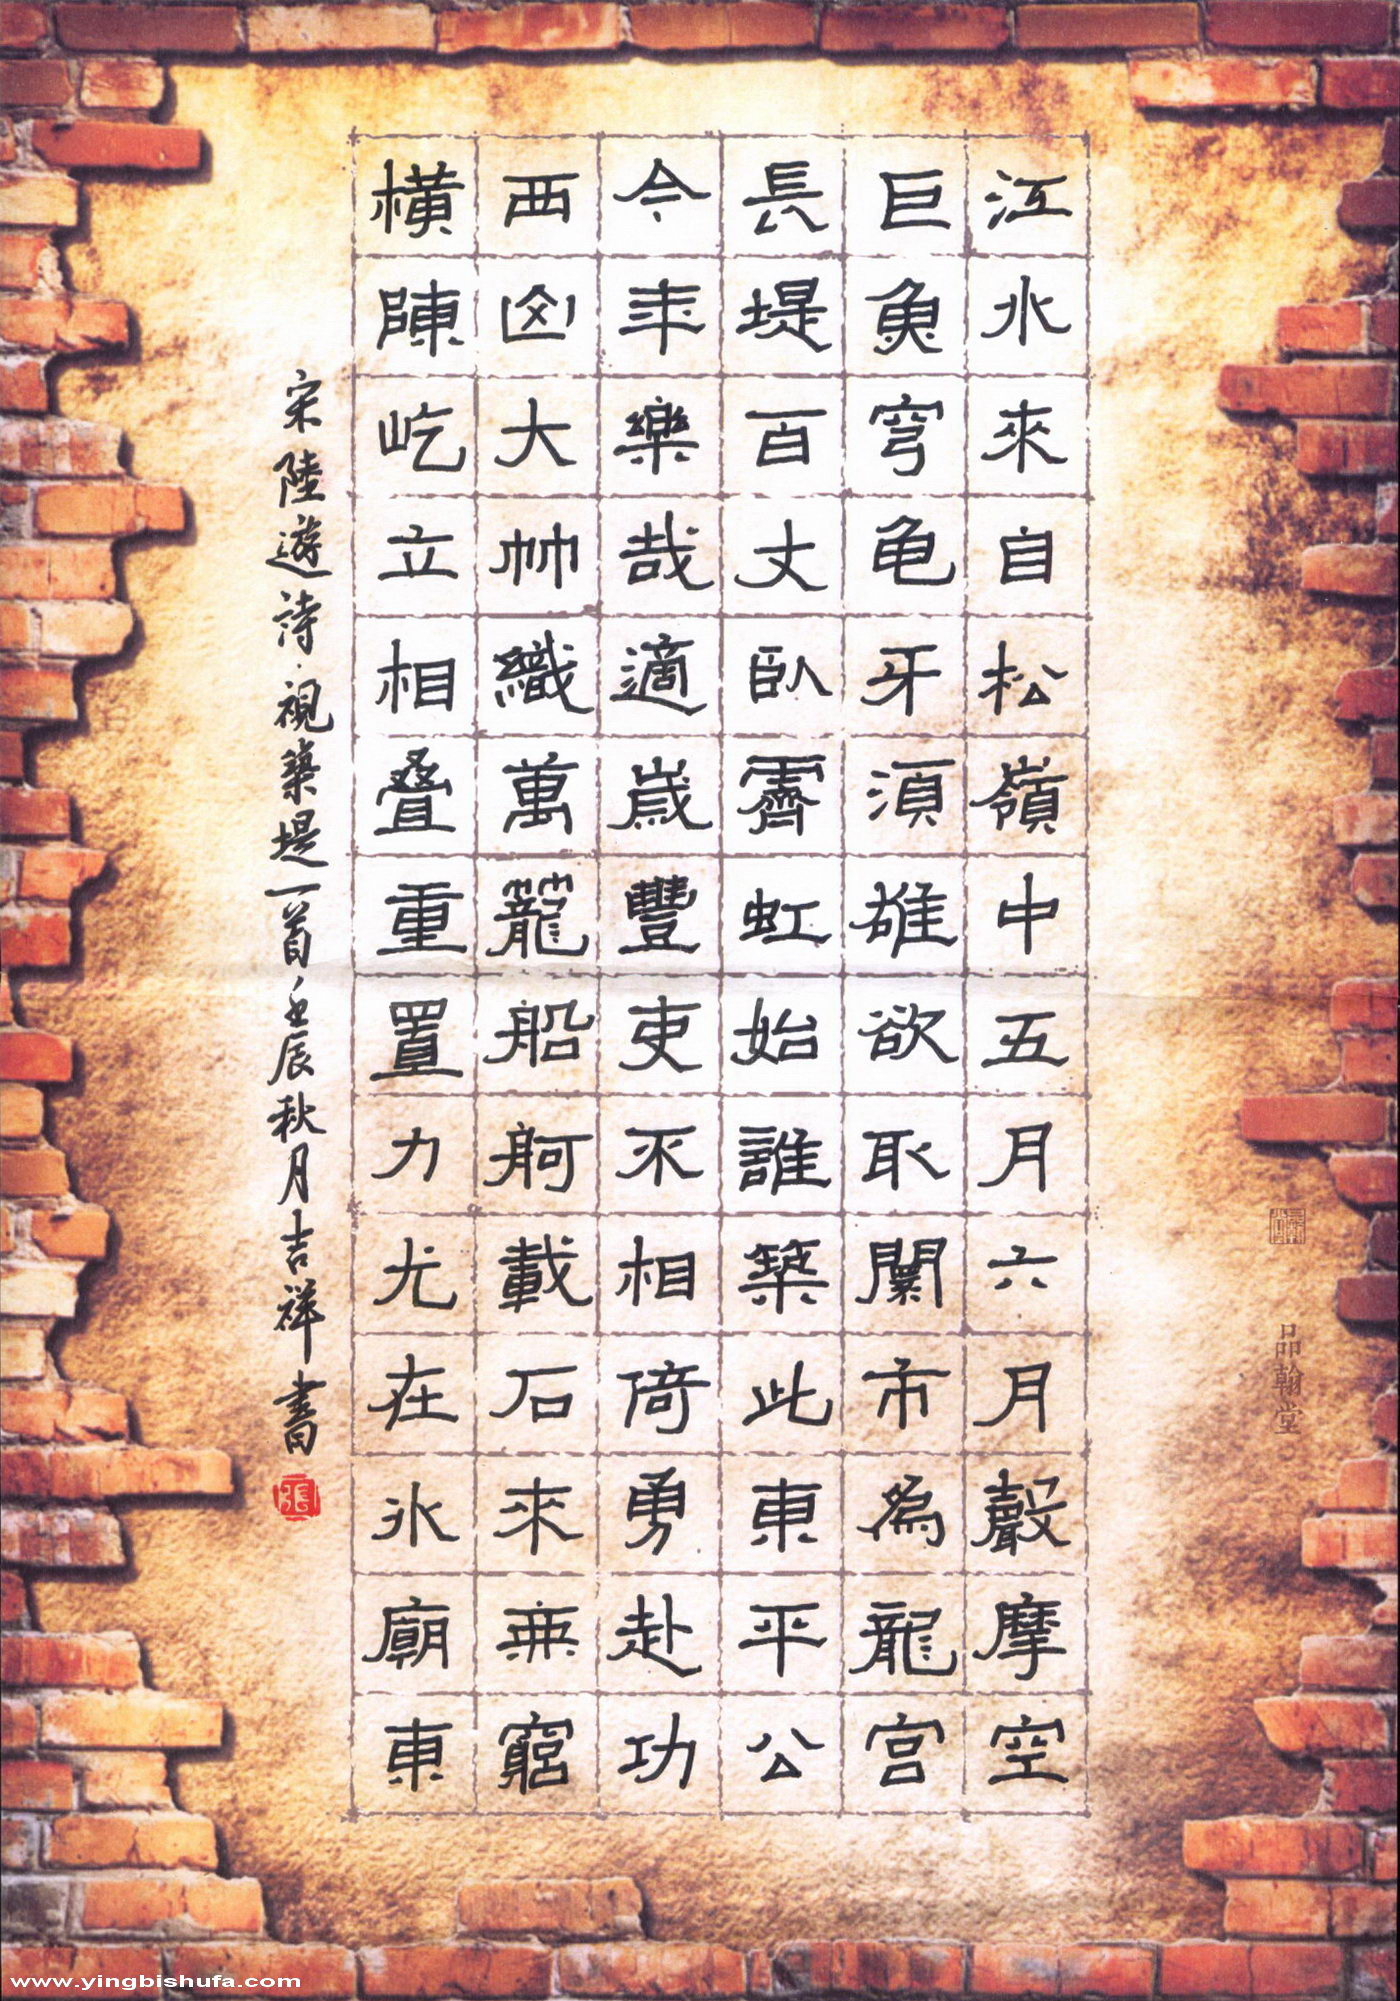 江水來自松嶺中五月六月聲摩空
巨魚穹龟牙湏雄欲取闤市為龍宮
長堤百丈臥霽虹始誰築此東平公
今年樂哉適歲豐吏不相倚勇赴功
西山大竹織萬籠船舸載石來無窮
橫陳屹立相叠重置力尤在水廟東
宋陸遊詩·視築堤一首壬辰秋月吉祥書
張
品翰堂
www.yingbishufa.com